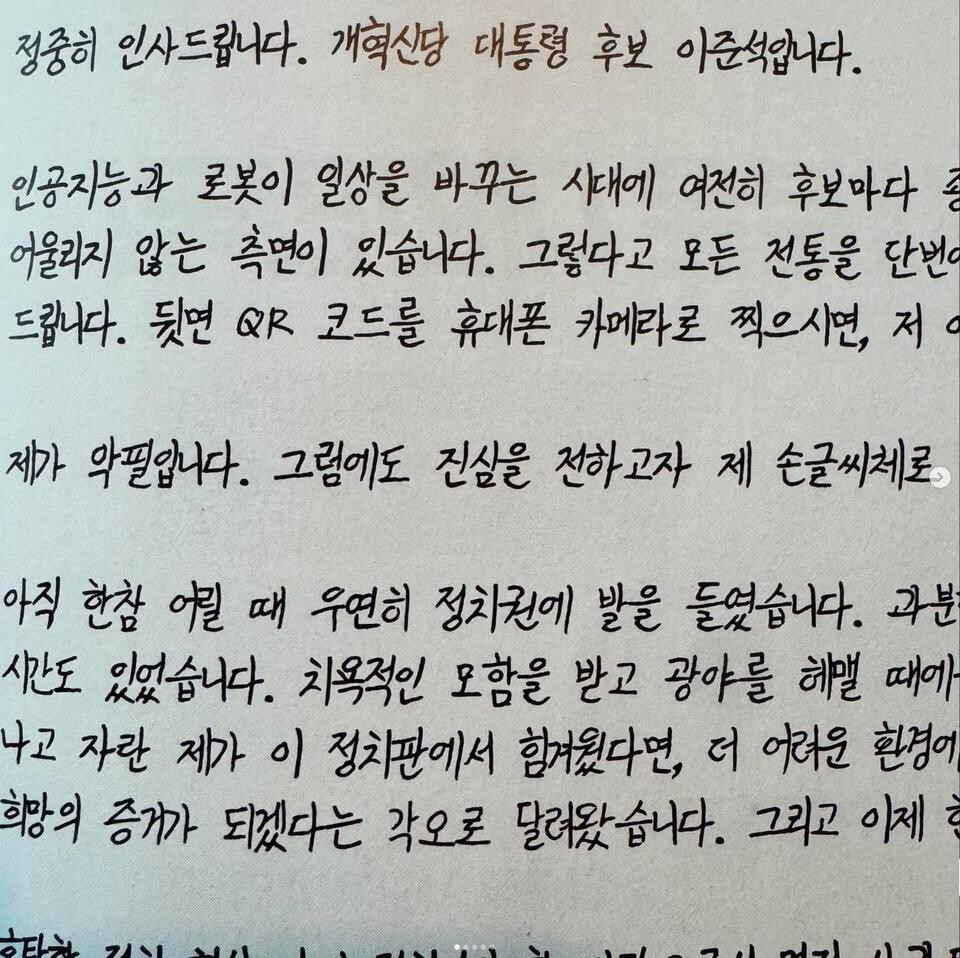 정중히 인사드립니다. 개혁신당 대통령 후보 이준석입니다.
인공지능과 로봇이 일상을 바꾸는 시대에 여전히 후보마다
어울리지 않는 측면이 있습니다. 그렇다고 모든 전통을
드립니다. 뒷면 QR 코드를 휴대폰 카메라로 찍으시면, 저
제가 악필입니다. 그럼에도 진심을 전하고자 제 손글씨체로
아직 한참 어릴 때 우연히 정치권에 발을 들였습니다.
시간도 있었습니다. 치욕적인 모함을 받고 광야를 헤맬 때에
나고 자란 제가 이 정치판에서 힘겨웠다면, 더 어려운 환경에
희망의 증거가 되겠다는 각오로 달려왔습니다. 그리고 이제